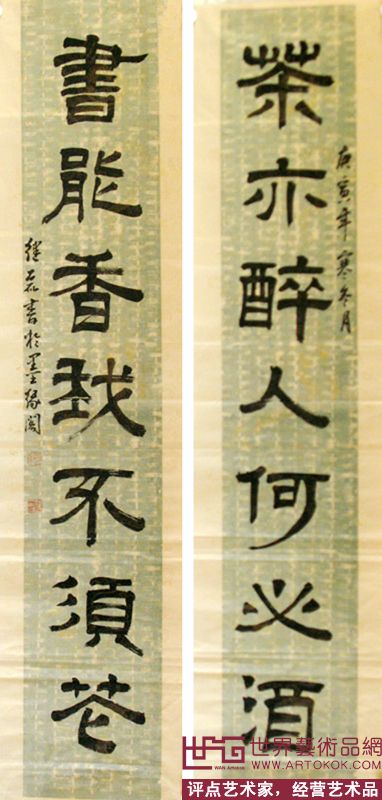 庚寅年寒冬月
茶亦醉人何必酒
書能香我不須花
磊書於墨缘阁
世界藝術品網
WWW.ARTOKOK.COM
评点艺术家，经营艺术品